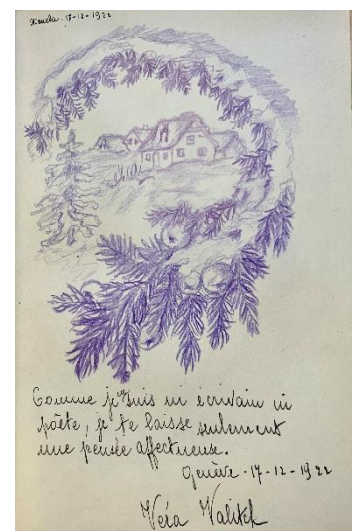 17-12-1922
Comme je suis ni écrivain ni
poète, je te laisse seulement
une pensée affectueuse.
Genève - 17-12-1922
Véra